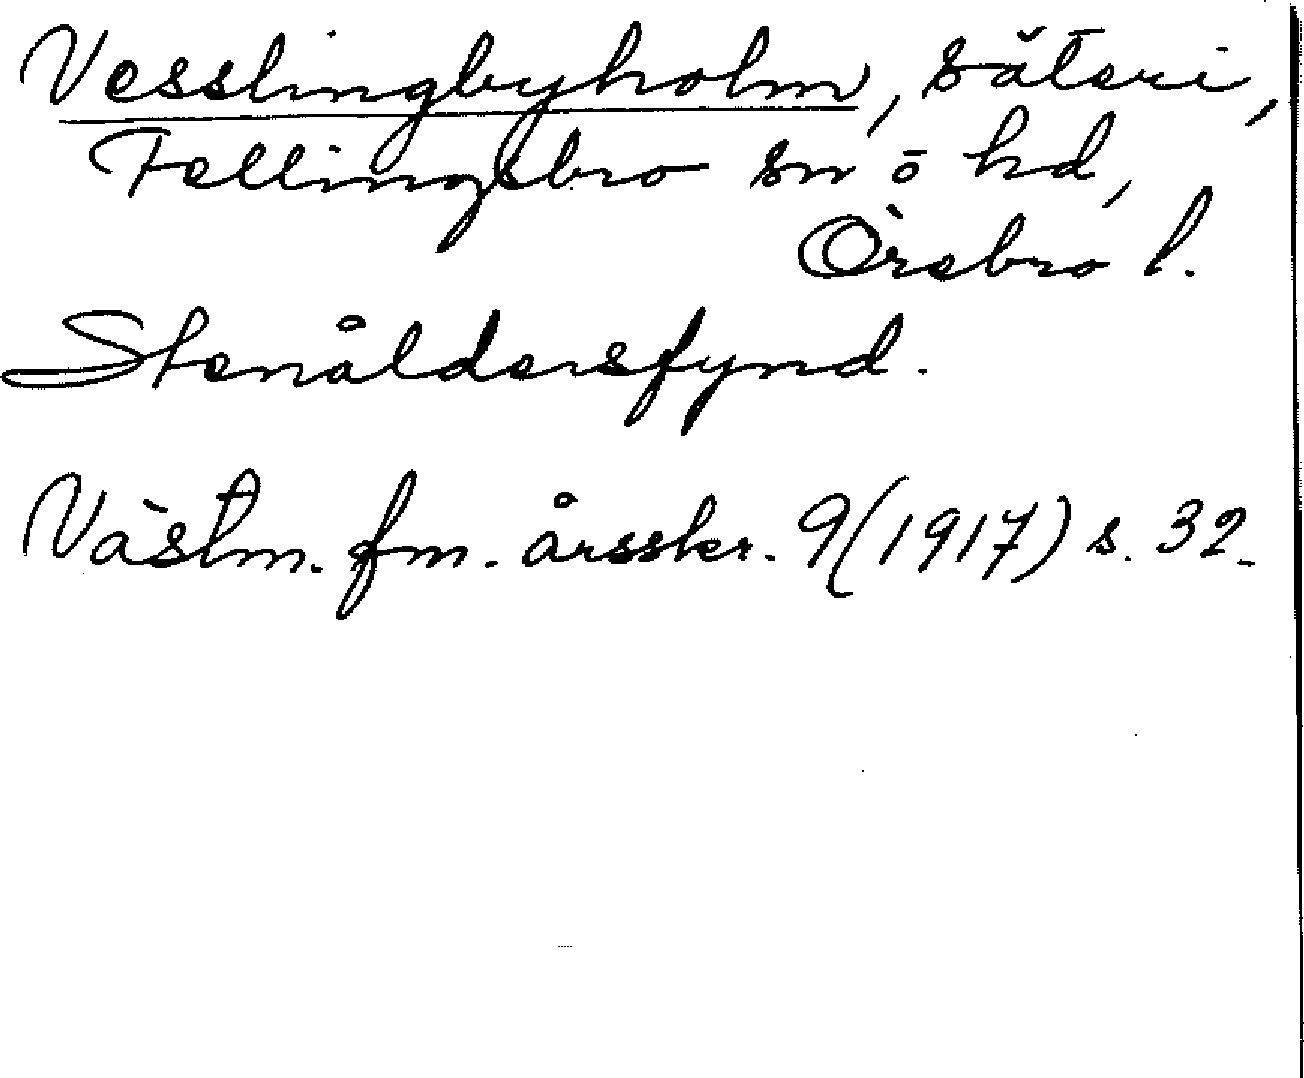 Vesslingbyholm, säteri,
Fellingsbro sn o hd,
Örebro l.
Stenåldersfynd.
Västm. fm. årsskr. 9(1917) s. 32.